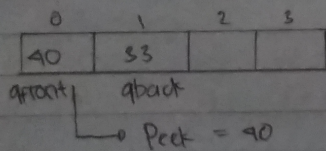 0 1 2 3
40 33
qfront qback
Peek = 40